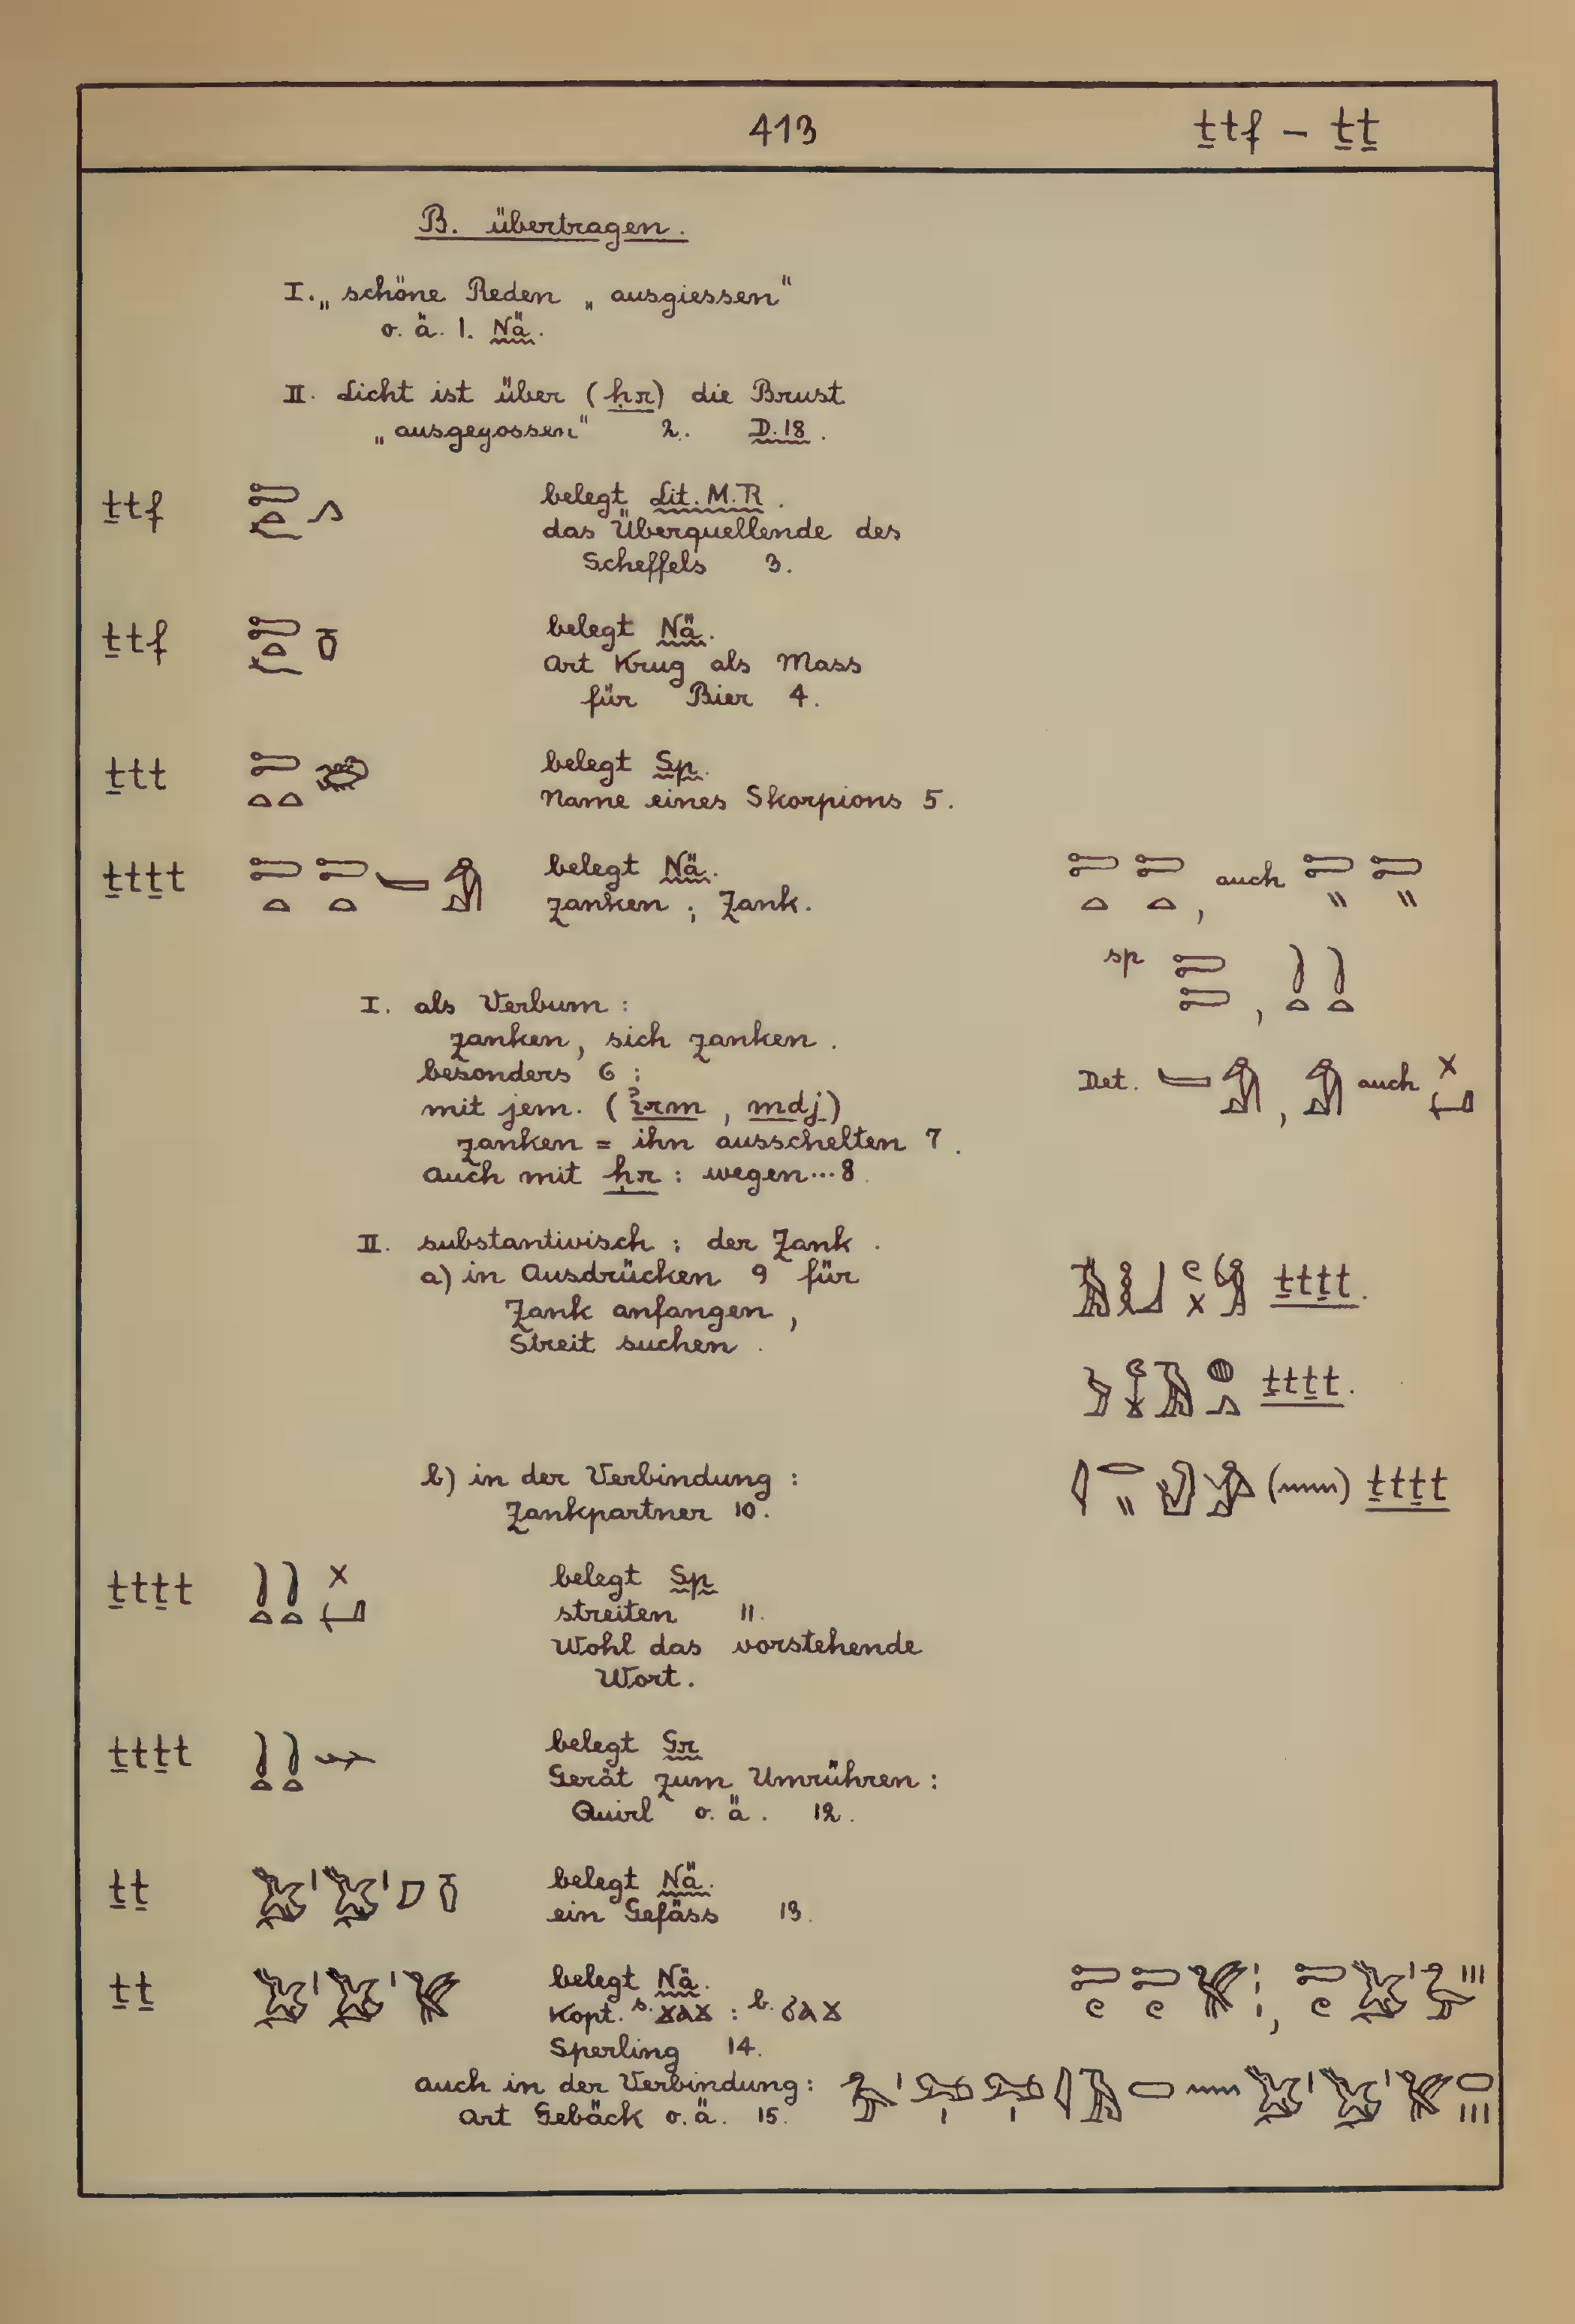 413 ṯtf – ṯṯ
B. übertragen.
I. „schöne Reden „ausgiessen"
o. ä. 1. Nä.
II. Licht ist über (ḥr) die Brust
„ausgegossen" 2. D.18.
ṯtf belegt Lit. M.R.
das Überquellende des
Scheffels 3.
ṯtf belegt Nä.
Art Krug als Mass
für Bier 4.
ṯtt belegt Sp.
Name eines Skorpions 5.
ṯtṯt belegt Nä.
zanken; Zank.
auch
sp
I. als Verbum:
zanken, sich zanken.
besonders 6:
Det. auch
mit jem. (ỉrm, mdj)
zanken = ihn ausschelten 7.
auch mit ḥr: wegen...8.
II. substantivisch: der Zank.
a) in Ausdrücken 9 für ṯtṯt.
Zank anfangen,
Streit suchen.
ṯtṯt.
b) in der Verbindung: ṯtṯt
Zankpartner 10.
ṯtṯt belegt Sp
streiten 11.
Wohl das vorstehende
Wort.
ṯtṯt belegt Gr
Gerät zum Umrühren:
Quirl o. ä. 12.
ṯṯ belegt Nä.
ein Gefäss 13.
ṯṯ belegt Nä.
Kopt. s. ϫⲁϫ : b. ϭⲁϫ
Sperling 14.
auch in der Verbindung:
Art Gebäck o. ä. 15.